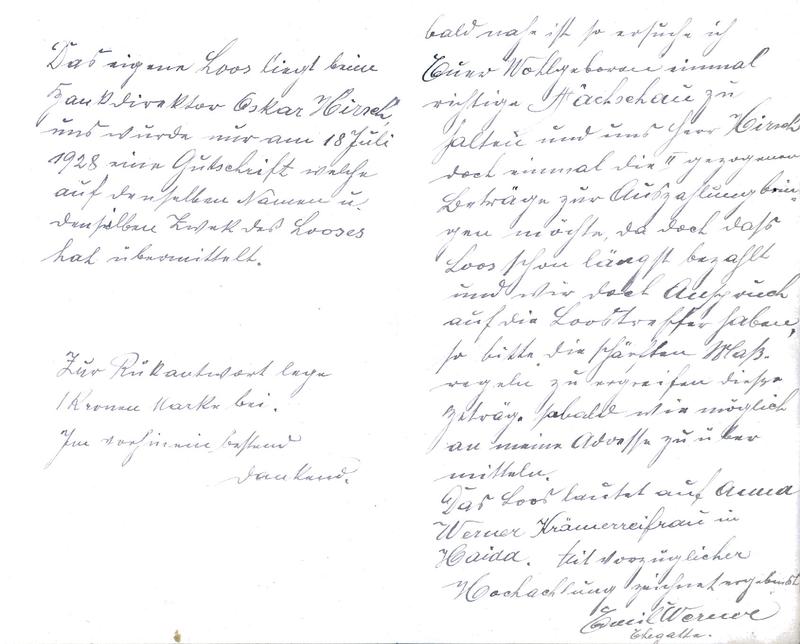 Das eigene Loos liegt beim
Bankdirektor Oskar Hirsch,
uns wurde nur am 18 Juli
1928 eine Gutschrift welche
auf denselben Namen u.
denselben Zwek des Looses
hat übermittelt.
Zur Rükantwort lege
1 Kronen Marke bei.
Im vorhinein bestens
dankend.
bald nahe ist so ersuche ich
Euer Wohlgeboren einmal
richtige Nachschau zu
halten und uns Herr Hirsch
doch einmal die II gezogenen
Beträge zur Auszahlung brin-
gen möchte, da doch dass
Loos schon längst bezahlt
und wir doch Anspruch
auf die Loostreffer haben,
so bitte die schärfsten Maß-
regeln zu ergreifen diese
Beträge sobald wie möglich
an meine Adresse zu über
mitteln.
Das Loos lautet auf Anna
Werner Krämerreifrau in
Haida. Mit vorzüglicher
Hochachtung zeichnet ergebenst
Emil Werner
Ehegatte.